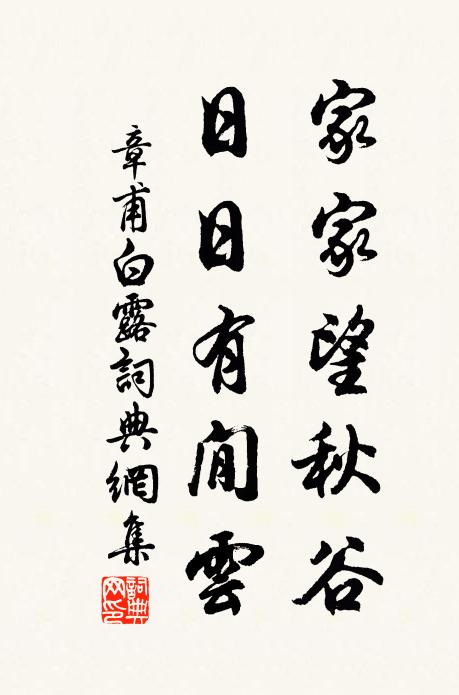 家家望秋谷
日日有閒雲
章甫白露詞典網集
詞典网印